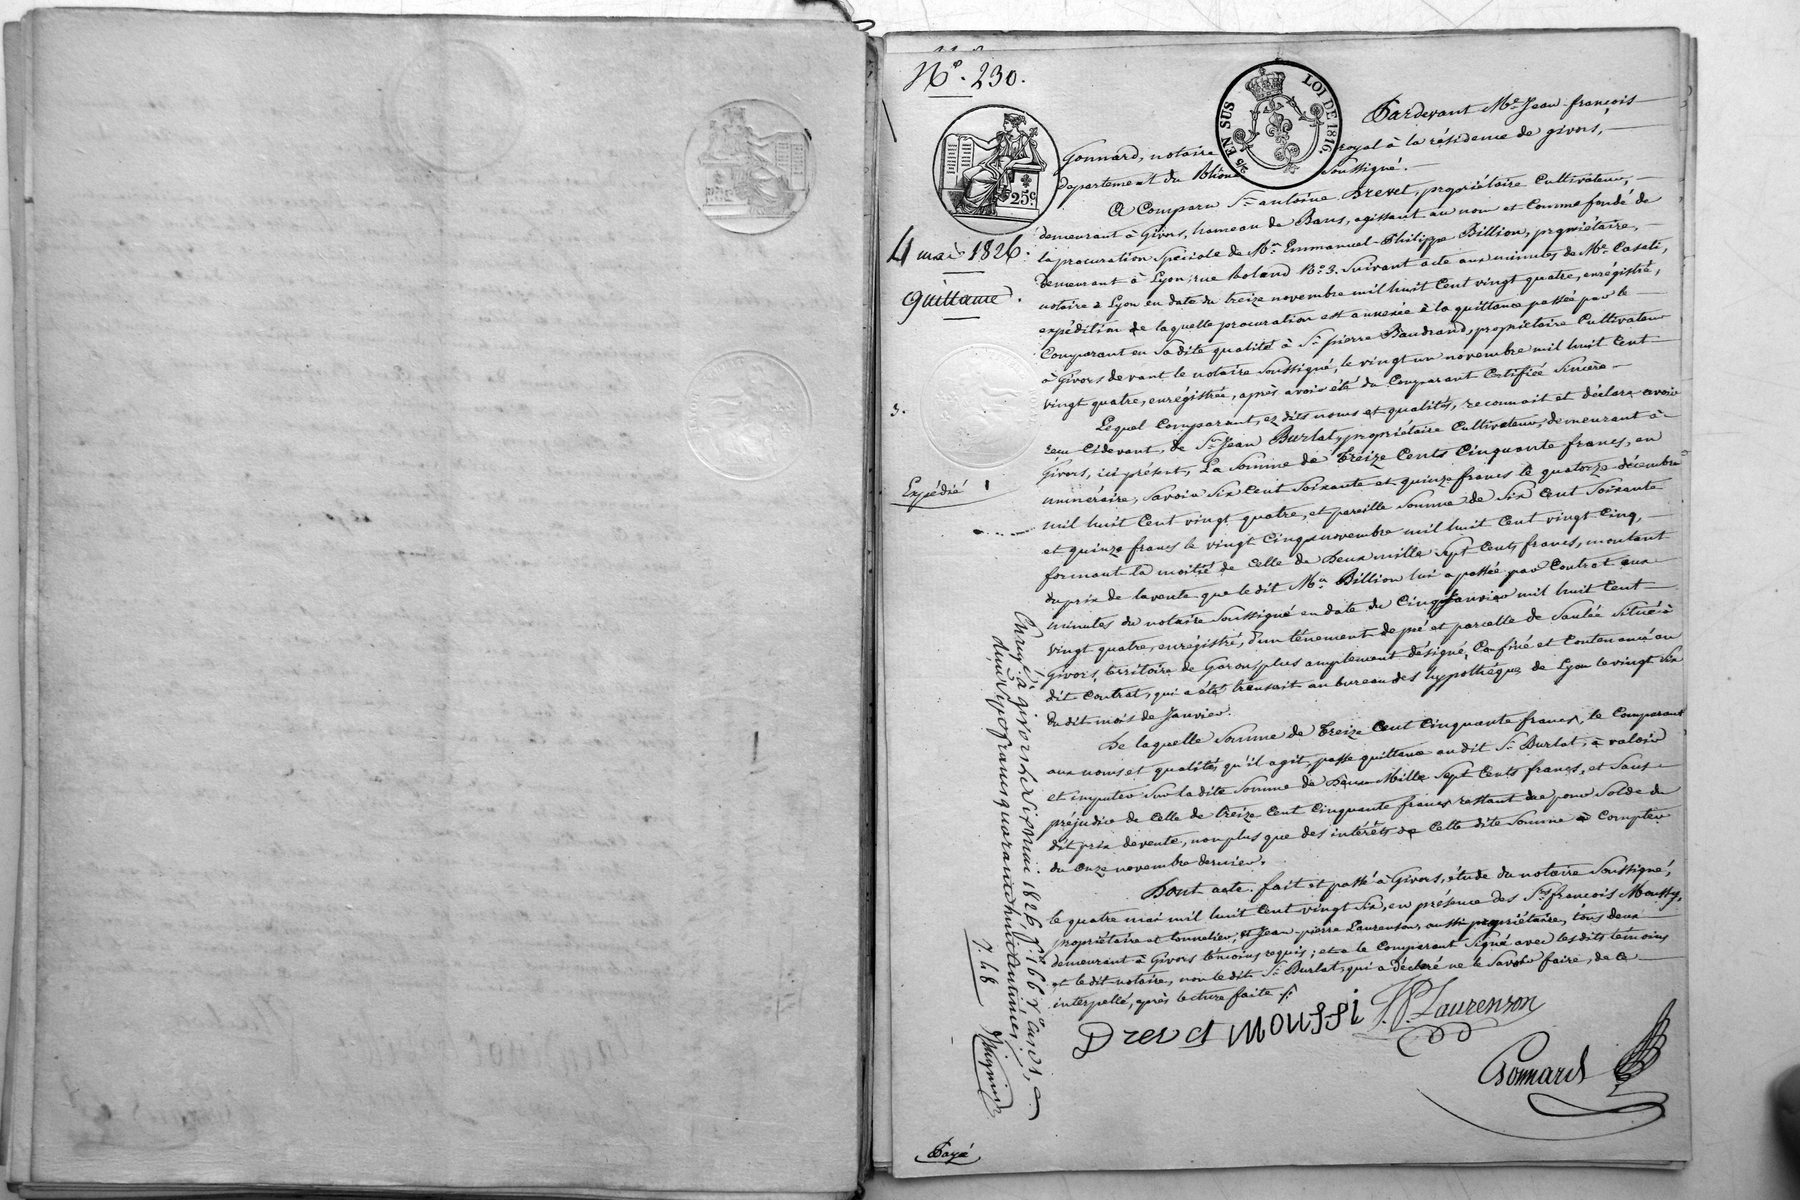 N.º 230.
EN SUS
LOI DE 1816.
25c
Pardevant Me. Jean-françois
Gonnard, notaire royal à la résidence de givors,
departement du Rhône soussigné.
A Comparu Sr. antoine Drevet, propriétaire Cultivateur,
demeurant à Givors, hameau de Bans, agissant au nom et Comme fondé de
la procuration spéciale de Mr. Emmanuel-Philippe Billion, propriétaire,
Demeurant à Lyon, rue Roland N.º 3. suivant acte aux minutes de Me. Casati,
notaire à Lyon en date du treize novembre mil huit Cent vingt quatre, enrégistré,
expédition de laquelle procuration est annexée à la quittance passée par le
Comparant en sa dite qualité à Sr. pierre Baudrand, propriétaire Cultivateur
à Givors devant le notaire soussigné, le vingt un novembre mil huit Cent
vingt quatre, enrégistrée, après avoir été du Comparant Certifiée sincère.
4 mai 1826.
Quittance.
3.
Expédié
Lequel Comparant, ez dits noms et qualités, reconnait et déclare avoir
reçu Cidevant, de Sr. Jean Burlat, propriétaire Cultivateur, demeurant à
Givors, ici présent, La somme de Treize Cents Cinquante francs, en
numéraire, savoir six Cent soixante et quinze francs le quatorze décembre
mil huit Cent vingt quatre, et pareille somme de six Cent soixante
et quinze francs le vingt Cinq novembre mil huit Cent vingt Cinq,
formant la moitié de Celle de Deux mille sept Cents francs, montant
du prix de la vente que le dit Mr. Billion lui a passée par Contrat aux
minutes du notaire soussigné en date du Cinq Janvier mil huit Cent
vingt quatre, enrégistré, d'un ténement de pré et parcelle de saulée situé à
Givors, territoire de Garons, plus amplement désigné, Confiné et Contenancé au
dit Contrat, qui a été transcrit au bureau des hypothéques de Lyon le vingt six
du dit mois de Janvier.
De laquelle somme de Treize Cent Cinquante francs, le Comparant
aux noms et qualités qu'il agit, passe quittance au dit Sr. Burlat, à valoir
et imputer sur la dite somme de Deux Mille sept Cents francs, et sans
préjudice de Celle de treize Cent Cinquante francs restant due pour solde du
dit prix de vente, non plus que des intérêts de Cette dite somme à Compter
du onze novembre dernier.
Dont acte. fait et passé à Givors, étude du notaire soussigné,
le quatre mai mil huit Cent vingt six, en présence des Srs. françois Moussy,
propriétaire et tonnelier, et Jean-pierre Laurenson, aussi propriétaire, tous deux
demeurant à Givors témoins requis; et a le Comparant signé avec les dits témoins
et le dit notaire, non le dit Sr. Burlat, qui a déclaré ne le savoir faire, de ce
interpellé, après lecture faite
Drevet Moussi J. P. Laurenson
Gonnard
Enreg. à givors le six mai 1826 fo. 166 Vo. Cases 1,
francs quarante huit Centimes
7. 48
Payé